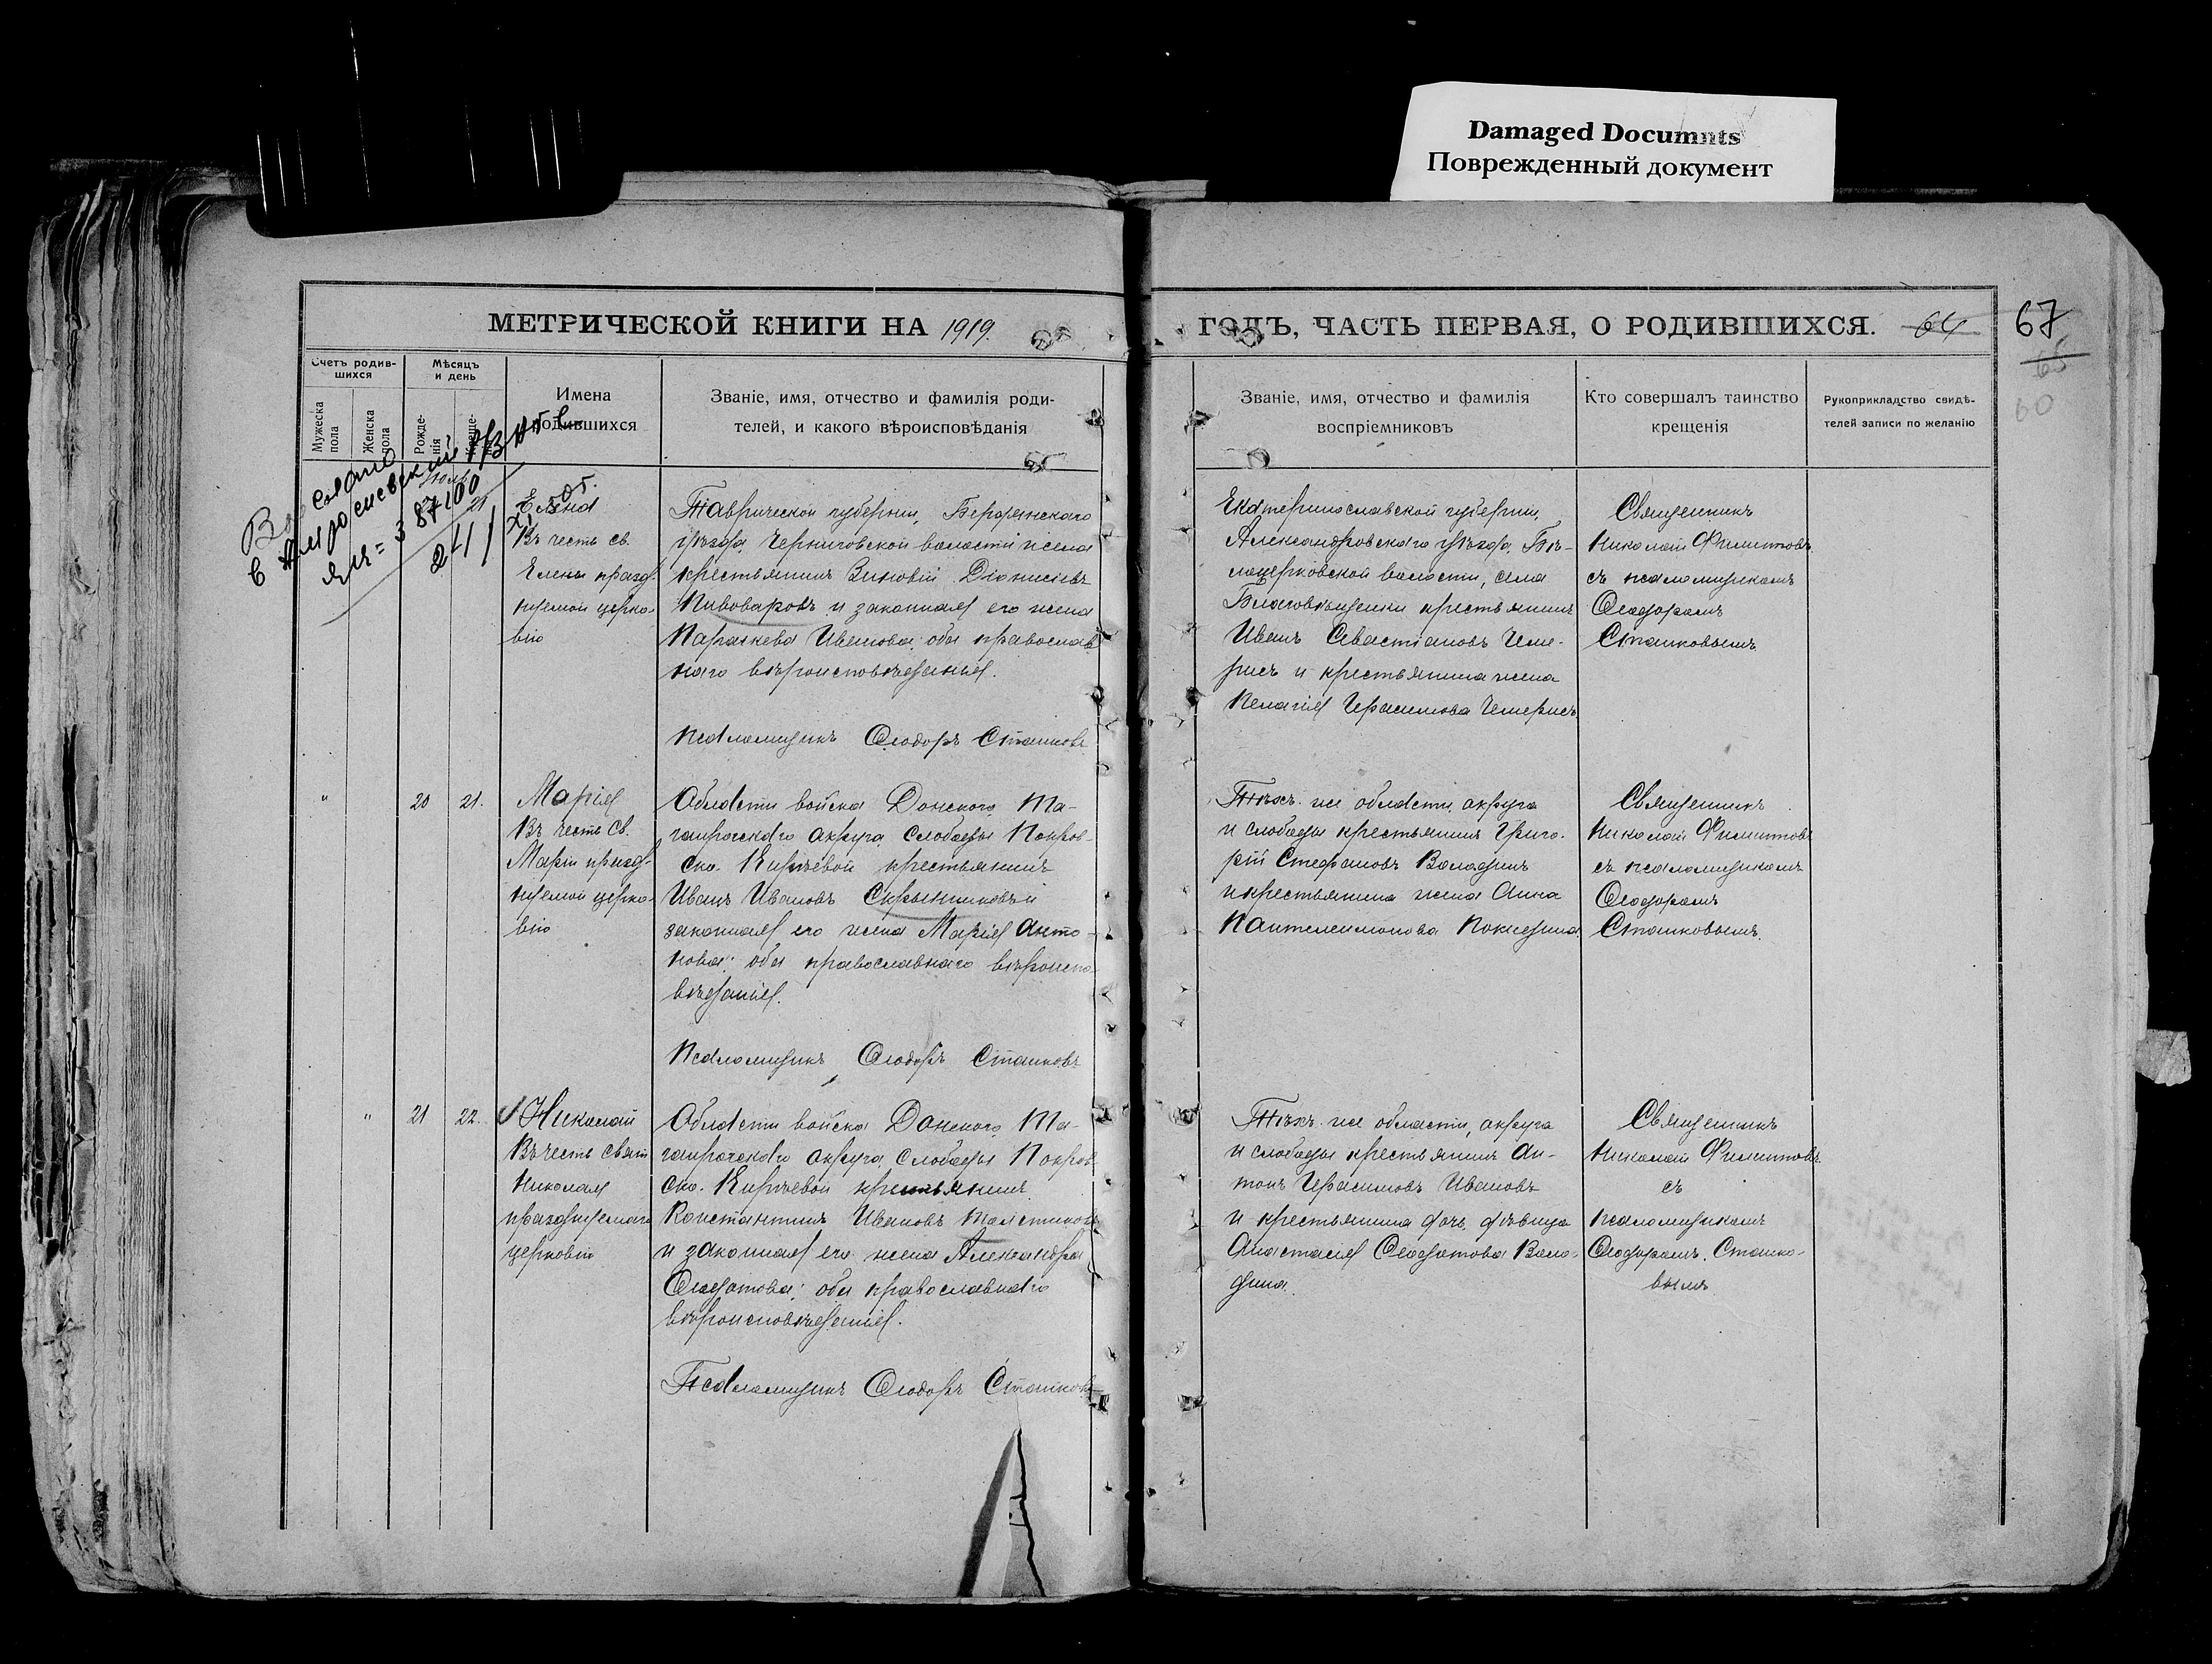 Damaged Documents
Поврежденный документ
МЕТРИЧЕСКОЙ КНИГИ НА 1919.
ГОДЪ, ЧАСТЬ ПЕРВАЯ, О РОДИВШИХСЯ. 64
67
65
60
Счетъ родив-
шихся
Мужеска
пола
Женска
пола
Мѣсяцъ
и день
Рожде-
нія
Креще-
нія
Имена
родившихся
Званіе, имя, отчество и фамилія роди-
телей, и какого вѣроисповѣданія
Званіе, имя, отчество и фамилія
воспріемниковъ
Кто совершалъ таинство
крещенія
Рукоприкладство свидѣ-
телей записи по желанію
21
Елена
Въ честь св.
Елены празд-
нуемой церко-
вію
Таврической губерніи, Бердянскаго
уѣзда, Черниговской волости и села
крестьянинъ Зиновій Діонисіевъ
Пивоваровъ и законная его жена
Параскева Иванова: оба православ
наго вѣроисповѣданія.
Псаломщикъ Ѳеодоръ Сташковъ
Екатеринославской губерніи,
Александровскаго уѣзда, Бѣ-
лоцерковской волости, села
Благовѣщенки крестьянинъ
Иванъ Севастіановъ Чеме-
рисъ и крестьянина жена
Пелагія Герасимова Чемерисъ
Священникъ
Николай Филиповъ
съ псаломщикомъ
Ѳеодоромъ
Сташковымъ.
" 20 21.
Марія
Въ честь св.
Маріи празд-
нуемой церко-
вію
Области войска Донского, Та-
ганрогскаго округа, слободы Покров-
ско-Кирѣевой крестьянинъ
Иванъ Ивановъ Скрынниковъ и
законная его жена Марія Анто-
нова: оба православнаго вѣроиспо-
вѣданія.
Псаломщикъ Ѳеодоръ Сташковъ
Тѣхъ-же области, округа
и слободы крестьянинъ Григо-
рій Стефановъ Володинъ
и крестьянина жена Анна
Пантелеимонова Покидина
Священникъ
Николай Филиповъ
съ псаломщикомъ
Ѳеодоромъ
Сташковымъ.
" 21 22.
Николай
Въ честь свят.
Николая
празднуемаго
церковію
Области войска Донского, Та-
ганрогскаго округа, слободы Покров-
ско-Кирѣевой крестьянинъ
Константинъ Ивановъ Толстиковъ
и законная его жена Александра
Ѳеодотова: оба православнаго
вѣроисповѣданія.
Псаломщикъ Ѳеодоръ Сташковъ
Тѣхъ-же области, округа
и слободы крестьянинъ Ан-
тонъ Герасимовъ Ивановъ
и крестьянина дочь дѣвица
Анастасія Ѳеодотова Воло-
дина.
Священникъ
Николай Филиповъ
съ
псаломщикомъ
Ѳеодоромъ Сташко-
вымъ